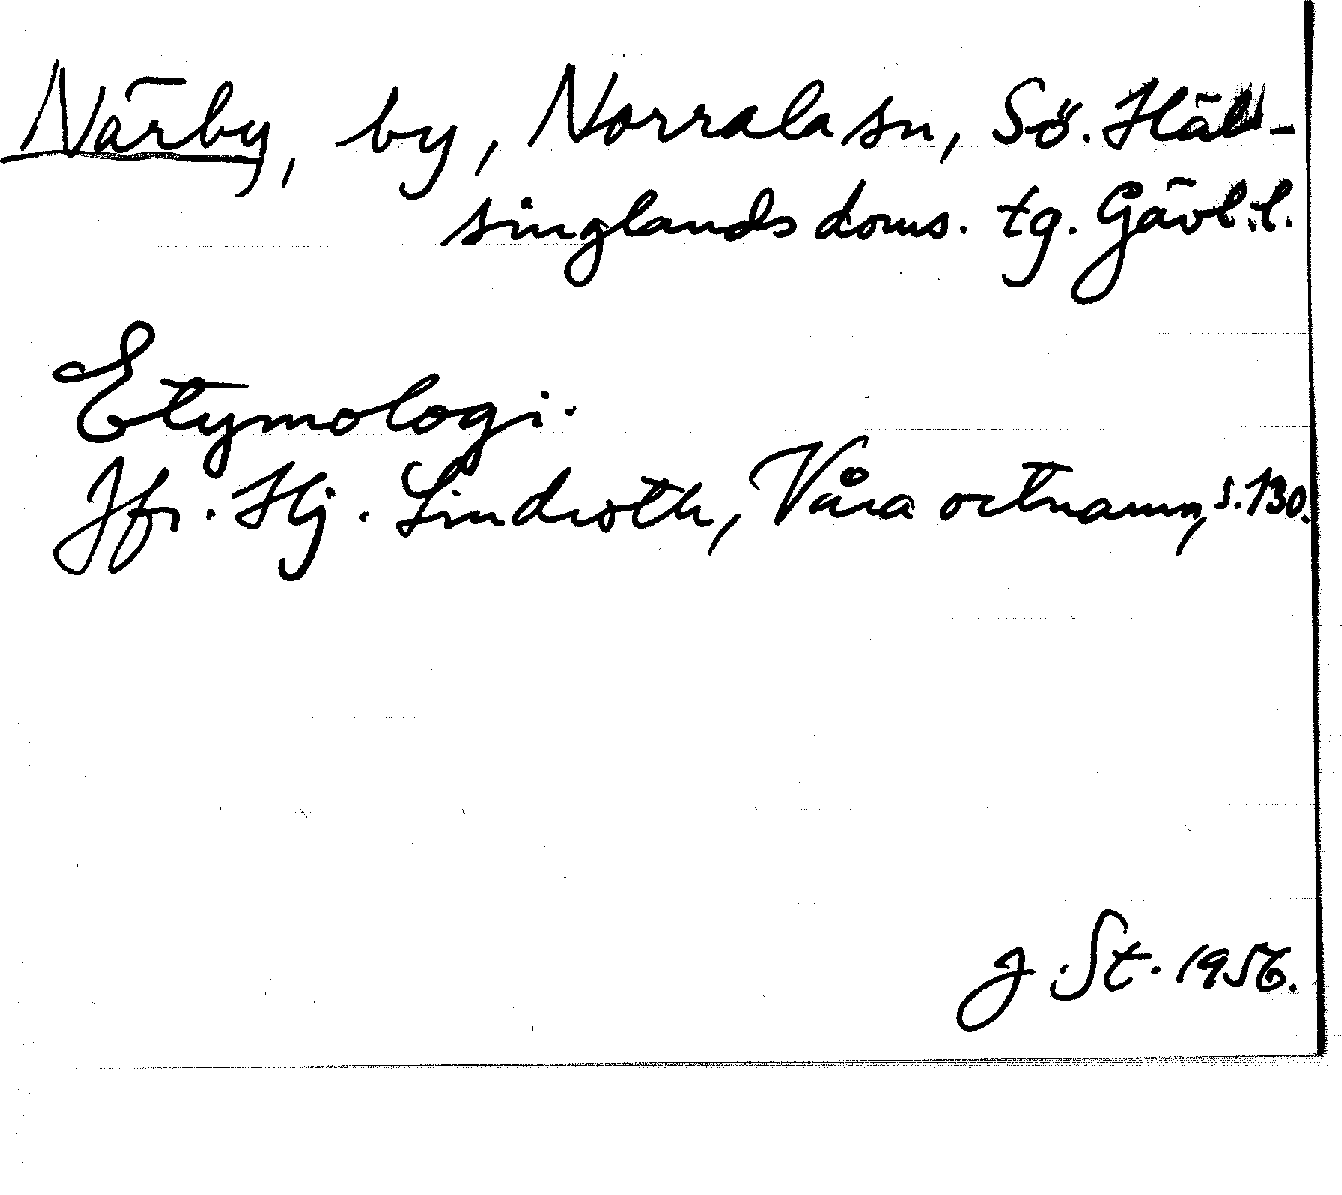 Närby, by, Norrala sn, Sö. Häl-
singlands doms. tg. Gävl. l.
Etymologi.
Jfr. Hj. Lindroth, Våra ortnamn, s. 130.
J. St. 1956.